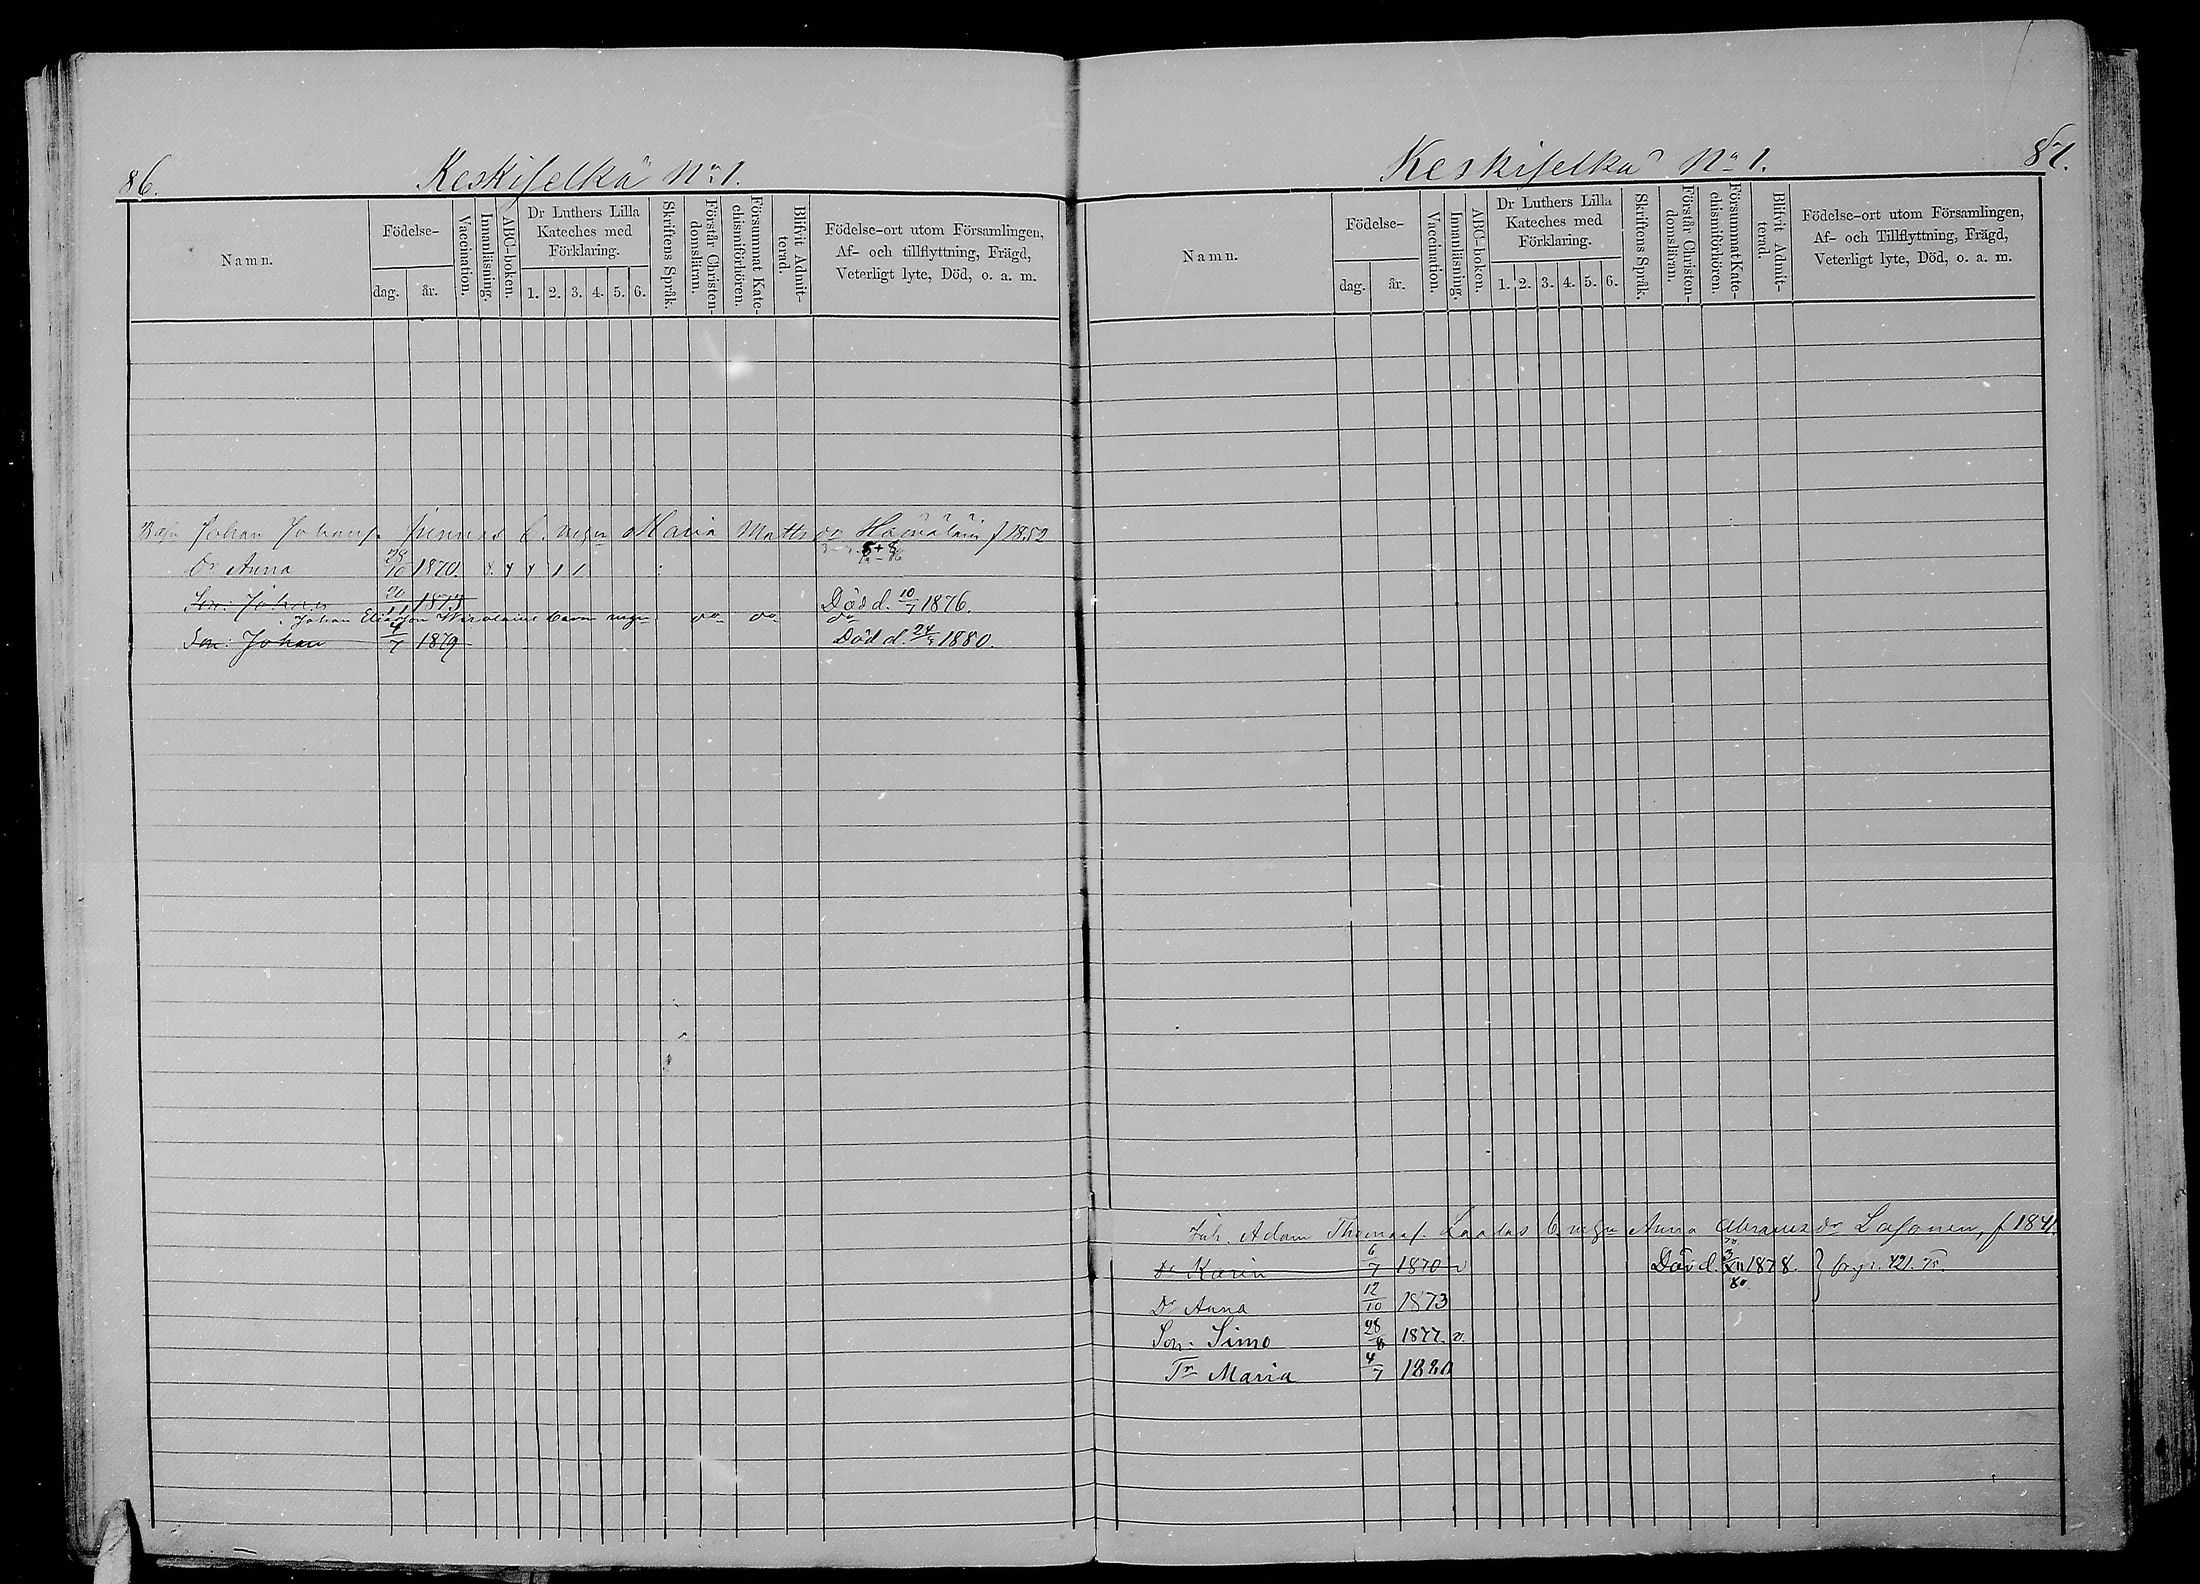 86.
Keskiselkä No 1.
Namn.
Födelse-
dag.
år.
Vaccination.
Innanläsning.
ABC-boken.
Dr Luthers Lilla
Kateches med
Förklaring.
1. 2. 3. 4. 5. 6.
Skriftens Språk.
Förstår Christen-
domsläran.
Försummat Kate-
chismiförhören.
Blifvit Admit-
terad.
Födelse-ort utom Församlingen,
Af- och tillflyttning, Frägd,
Veterligt lyte, Död, o. a. m.
Johan Johans. Maria Matts dr f 1852
Dr Anna 28/10 1870.
Son: Johan 1875 Död d. 10/7 1876.
Johan do do do
Son: Johan 4/7 1879 Död d. 24/5 1880.
87.
Keskiselkä No 1.
Namn.
Födelse-
dag.
år.
Vaccination.
Innanläsning.
ABC-boken.
Dr Luthers Lilla
Kateches med
Förklaring.
1. 2. 3. 4. 5. 6.
Skriftens Språk.
Förstår Christen-
domsläran.
Försummat Kate-
chismiförhören.
Blifvit Admit-
terad.
Födelse-ort utom Församlingen,
Af- och Tillflyttning, Frägd,
Veterligt lyte, Död, o. a. m.
Inh. Adam Thomas. Anna f 1841.
Dr Karin 6/7 1870 v Död d. 1878.
Dr Anna 12/10 1873
Son: Simo 28/8 1877. v
Tr Maria 4/7 1880